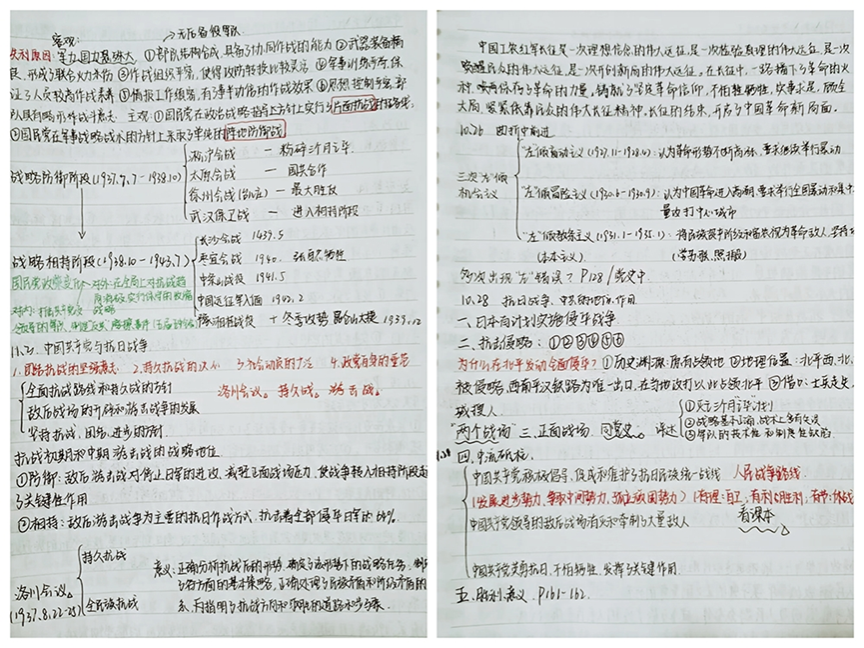 客观:
→无后备役军队
失利原因: 军力、国力差距大 ①部队结构合成,具备了协同作战的能力 ②武器装备精
良,形成了联合火力打击 ③作战组织严密,使得攻防转换比较灵活 ④军事训练有序,保
证了人员较高作战素养 ⑤情报工作缜密,有
队具有 战斗意志. 主观: ①国民党在政治战略指导上方针上实行了片面抗战的路线;
②国民党在军事战略战术的方针上采取了单纯的阵地防御战
战略防御阶段(1937.7.7-1938.10)
淞沪会战 — 粉碎三个月亡华.
太原会战 — 国共合作
徐州会战(台儿庄) — 最大胜战
武汉保卫战 — 进入相持阶段
战略相持阶段(1938.10-1943.7)
长沙会战 1939.5
枣宜会战 1940. 张自忠牺牲
中条山战役 1941.5
中国远征军入缅 1942.2
冬季攻势 昆仑山大捷 1939.12
国民党政策变化
对外:在全局上对抗战趋
11.2. 中国共产党与抗日战争.
1. 2.持久抗战的 3. 4.政党自身的
全面抗战路线和持久战的方针
敌后战场的开辟和游击战争的发展
坚持抗战、团结、进步的方针.
洛川会议。持久战。游击战。
抗战初期和中期游击战的战略地位
①防御: 敌后游击战对停止日军的进攻、减轻正面战场压力、使战争转入相持阶段起
了关键性作用
②相持: 敌后游击战争为主要的抗日作战方式,抗击着全部侵华日军的
洛川会议。
(1937.8.22-25)
持久抗战
全民族抗战
意义: 正确分析抗战后的形势,确定了 形势下的战略任务、制定
了各方面的基本策略,正确处理了民族矛盾和阶级矛盾的
系、为指明了抗战方向和 的道路和步骤.
中国工农红军长征是一次理想信念的伟大远征,是一次检验真理的伟大远征,是一次
唤醒民众的伟大远征,是一次开创新局的伟大远征。在长征中,一路播下了革命的火
种,保存了革命的力量,铸就了坚定革命信仰,不怕牺牲,实事求是,顾全
大局,紧紧依靠民众的伟大长征精神。长征的结束,开启了中国革命新局面。
10.26 四、折中前进
三次"左"倾
机会主义
"左"倾盲动主义(1927.11-1928.4): 认为革命形势不断高涨,要求继续举行暴动
"左"倾冒险主义(1930.6-1930.9): 认为中国革命进入高潮,要求举行全国暴动和集中
量攻打中心城市
"左"倾教条主义(1931.1-1935.1):
(本本主义) (学苏联、照搬)
多次出现"左"错误? P128/党史中.
10.28 抗日战争、中共的地位、作用
一、日本有计划实施侵华战争.
二、抗击侵略: ①②③④⑤⑥
为什么在北平发动全面侵华? ①历史渊源: ②地理位置: 北平西、北
被侵略,西南平汉铁路为唯一出口,在当地攻打以此占领北平 ③借口: 士兵走失
"两个战场" 三、正面战场. 国党史。 评述
①灭亡三个月亡华计划
②战略基本正确,战术上多有失误
③军队的
11.28 四、中流砥柱.
中国共产党积极倡导、促成和维护了抗日民族统一战线 人民战争路线.
(发展进步势力、争取中间势力、孤立顽固势力) (有理: 自卫, 有利: 胜利, 有节: 休战
中国共产党领导的敌后战场消灭和牵制了大量敌人 看课本
中国共产党英勇抗日、不怕牺牲,发挥了关键作用.
五、胜利意义. P161-162.